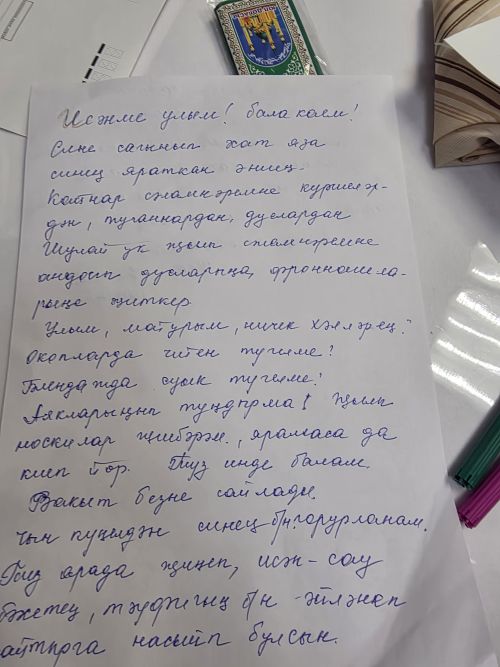 Исәнме улым! балакаем!
Сине сагынып хат яза
синең яраткан әниең.
Кайнар сәламнәремне күршеләр-
дән, туганнардан, дуслардан
Шулай ук җылы сәламнәремне
андагы дусларыңа, фронташла-
рыңа җиткер.
Улым, матурым, ничек хәлләрең?
Окопларда читен түгелме?
Блендажда суык түгелме?
Аякларыңны туңдырма! Җылы
носкилар җибәрәм, ярамаса да
киеп йөр. Түз инде балам.
Вакыт безне сайлады.
Чын күңелдән синең б/н горурланам.
Тиз арада җиңеп, исән-сау
бәхетең, тәүфыйгың б/н әйләнеп
кайтырга насыйп булсын.